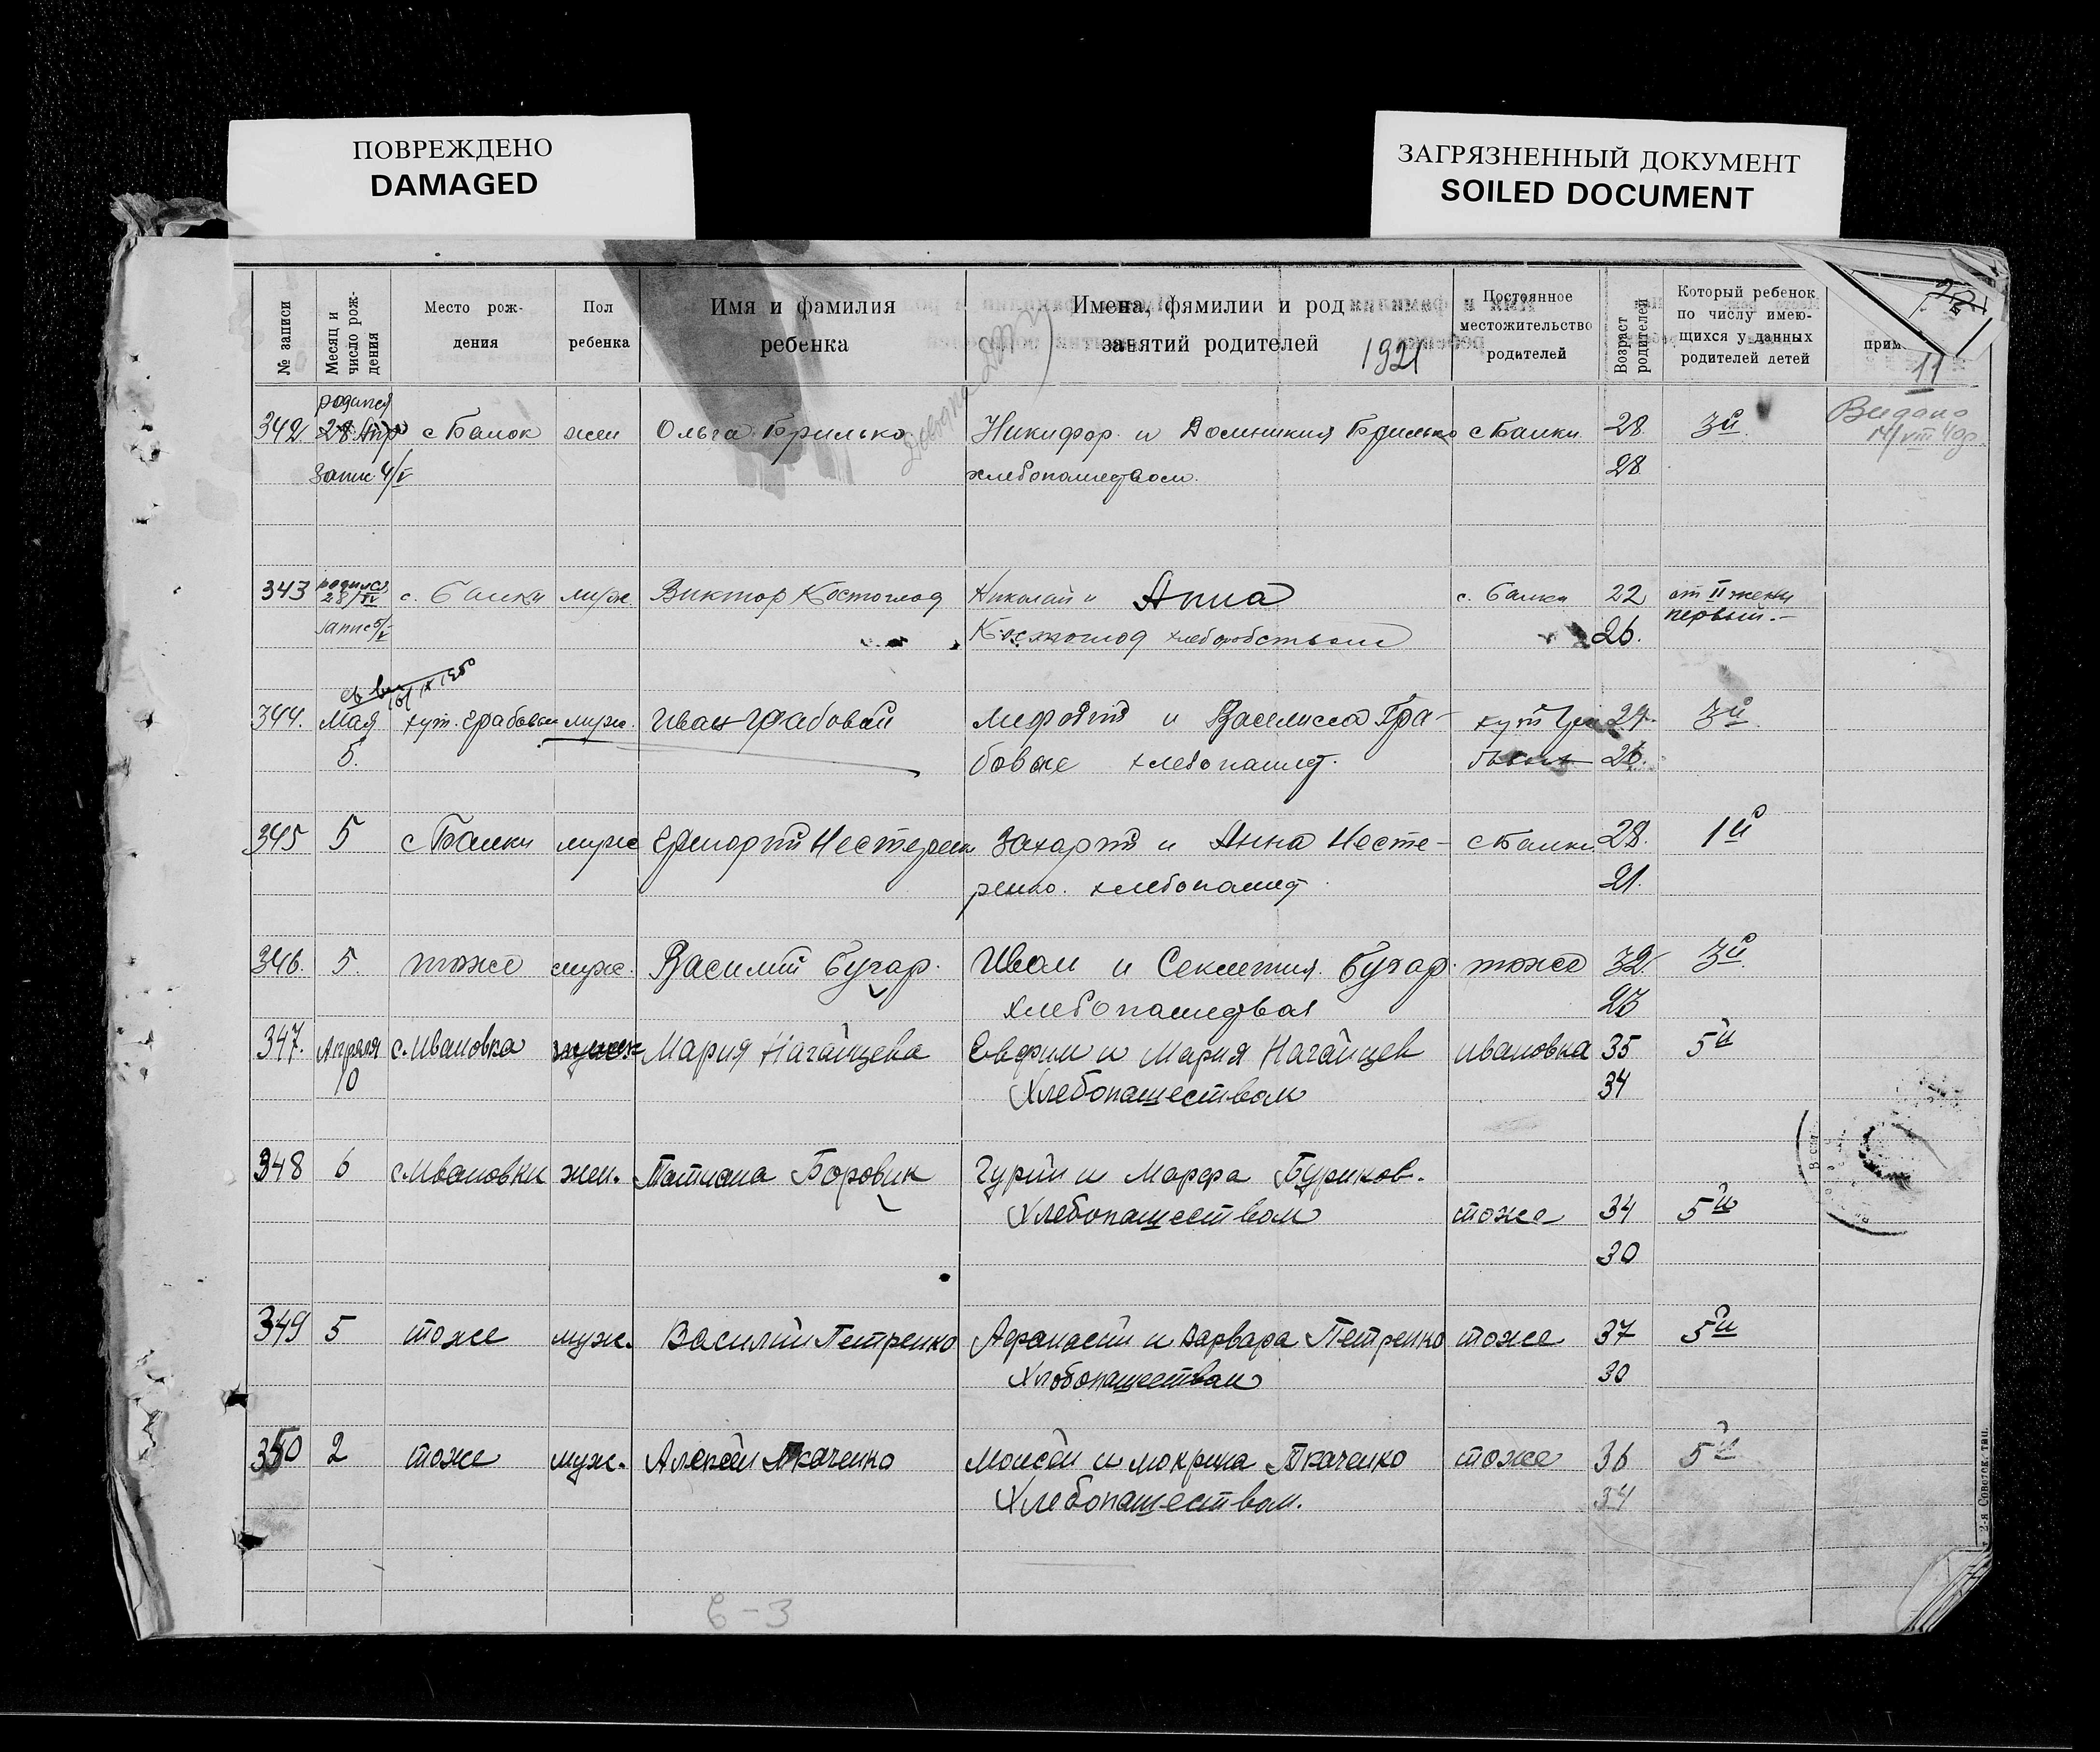 ПОВРЕЖДЕНО
DAMAGED
ЗАГРЯЗНЕННЫЙ ДОКУМЕНТ
SOILED DOCUMENT
№ записи
Месяц и число рож-дения
Место рож-дения
Пол ребенка
Имя и фамилия ребенка
Имена, фямилии и род занятий родителей
1921
Постоянное местожительство родителей
Возраст родителей
Который ребенок по числу имею-щихся у данных родителей детей
прим
11
родился
342 28 Апр с Балок жен Ольга Брилько Никифор и Домникия Брилько с Балки 28 3й Видано
запис 4/V хлебопашеством 28
343 родился 28/IV с. Балки муж. Виктор Костоглод Николай и Анна с. Балки 22 от II жены
запис 5/V Костоглод хлеборобством 26. первый.-
344. Мая хут. Грабовый муж. Иван Грабовый и Василиса Гра- хут Гра 3й
5. бовые хлебопашест. 26.
345 5 с Балки муж Нестеренко Захарий и Анна Несте- с Балки 28. 1й
ренко. хлебопашест 21.
346. 5. тоже муж. Василий Бугар. Иван и Секлетия Бугар. тоже 32. 3й
хлебопашества 23
347. Апреля с. Ивановка Мария Нагайцева Евфим и Мария Нагайцев Ивановка 35 5й
10 Хлебопашеством 34
348 6 с. Ивановки жен. Татиана Боровик Гурий и Марфа Буриков.
Хлебопашеством тоже 34 5й
30
349 5 тоже муж. Василий Петренко Афанасий и Варвара Петренко тоже 37 5й
Хлобопашеством 30
350 2 тоже муж. Алексей Ткаченко Моисей и Мокрина Ткаченко тоже 36 5й
Хлебопашеством. 34
6-3